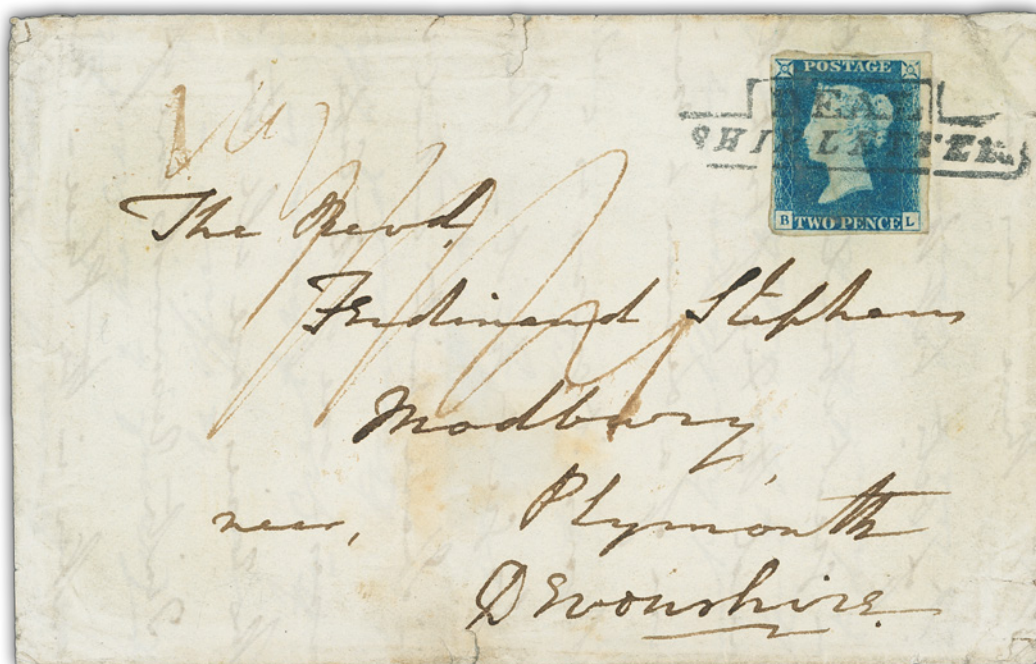 POSTAGE
DEAL
SHIP LETTER
B TWO PENCE L
The Revd.
Ferdinand Stephens
Modbury
near, Plymouth
Devonshire.